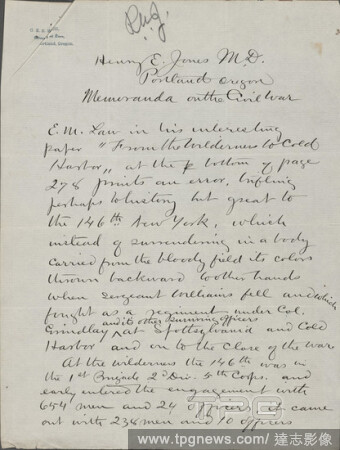 Henry E. Jones M.D.
Portland Oregon
Memoranda on the Civil War
E. M. Law in his interesting
paper "From the Wilderness to Cold
Harbor" at the bottom of page
278 prints an error, trifling
perhaps to history but great to
the 146th New York, which
instead of surrendering in a body
carried from the bloody field its colors
thrown backward to other hands
when Sergeant Williams fell and which
fought as a regiment under Col.
and its other surviving officers
Grindlay at Spottsylvania and Cold
Harbor and on to the close of the war
At the wilderness the 146th was in
the 1st Brigade 2d Div. 5th Corps, and
early entered the engagement with
654 men and 24 officers it came
out with 234 men and 10 officers
TPG
www.tpgnews.com/達志影像